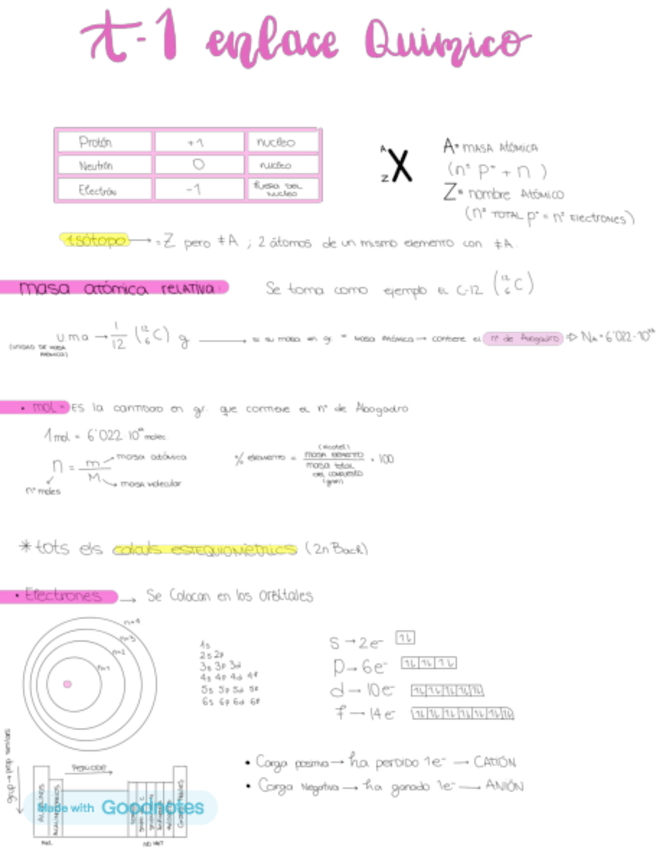 t-1 enlace Químico
Protón +1 nucleo
Neutrón 0 nucleo
Electrón -1 fuera del nucleo
A Z X
A= MASA ATÓMICA
(nº p+ + n )
Z= nombre Atómico
(nº TOTAL p+ = nº electrones)
isótopo → =Z pero ≠A ; 2 átomos de un mismo elemento con ≠A
masa atómica relativa:
Se toma como ejemplo el C-12 (12 6 C)
u.m.a → 1/12 (12 6 C) g → si su masa en gr. = masa Atómica → contiene el nº de Avogadro ⇒ NA = 6'022·10
(UNIDAD DE MASA ATÓMICA)
• mol = ES la cantidad en gr. que contiene el nº de Abogadro
1 mol = 6'022 10 molec.
n = m/M
masa atómica
masa molecular
nº moles
% elemento = masa elemento / masa total del compuesto (gram) · 100
*tots els calculs estequiomètrics (2n Bach)
• Electrones → Se Colocan en los orbitales
n=4
n=3
n=2
n=1
1s
2s 2p
3s 3p 3d
4s 4p 4d 4f
5s 5p 5d 5f
6s 6p 6d 6f
s → 2e-
p → 6e-
d → 10e-
f → 14e-
• Carga positiva → ha perdido 1e- → CATIÓN
• Carga Negativa → ha ganado 1e- → ANIÓN
PERIODO
grup → prop similars
ALCALINOS
Made with Goodnotes